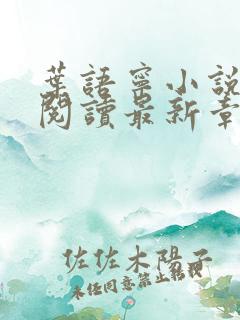 葉語寧小說
閱讀最新章
佐佐木陽子
未經同意禁止轉載